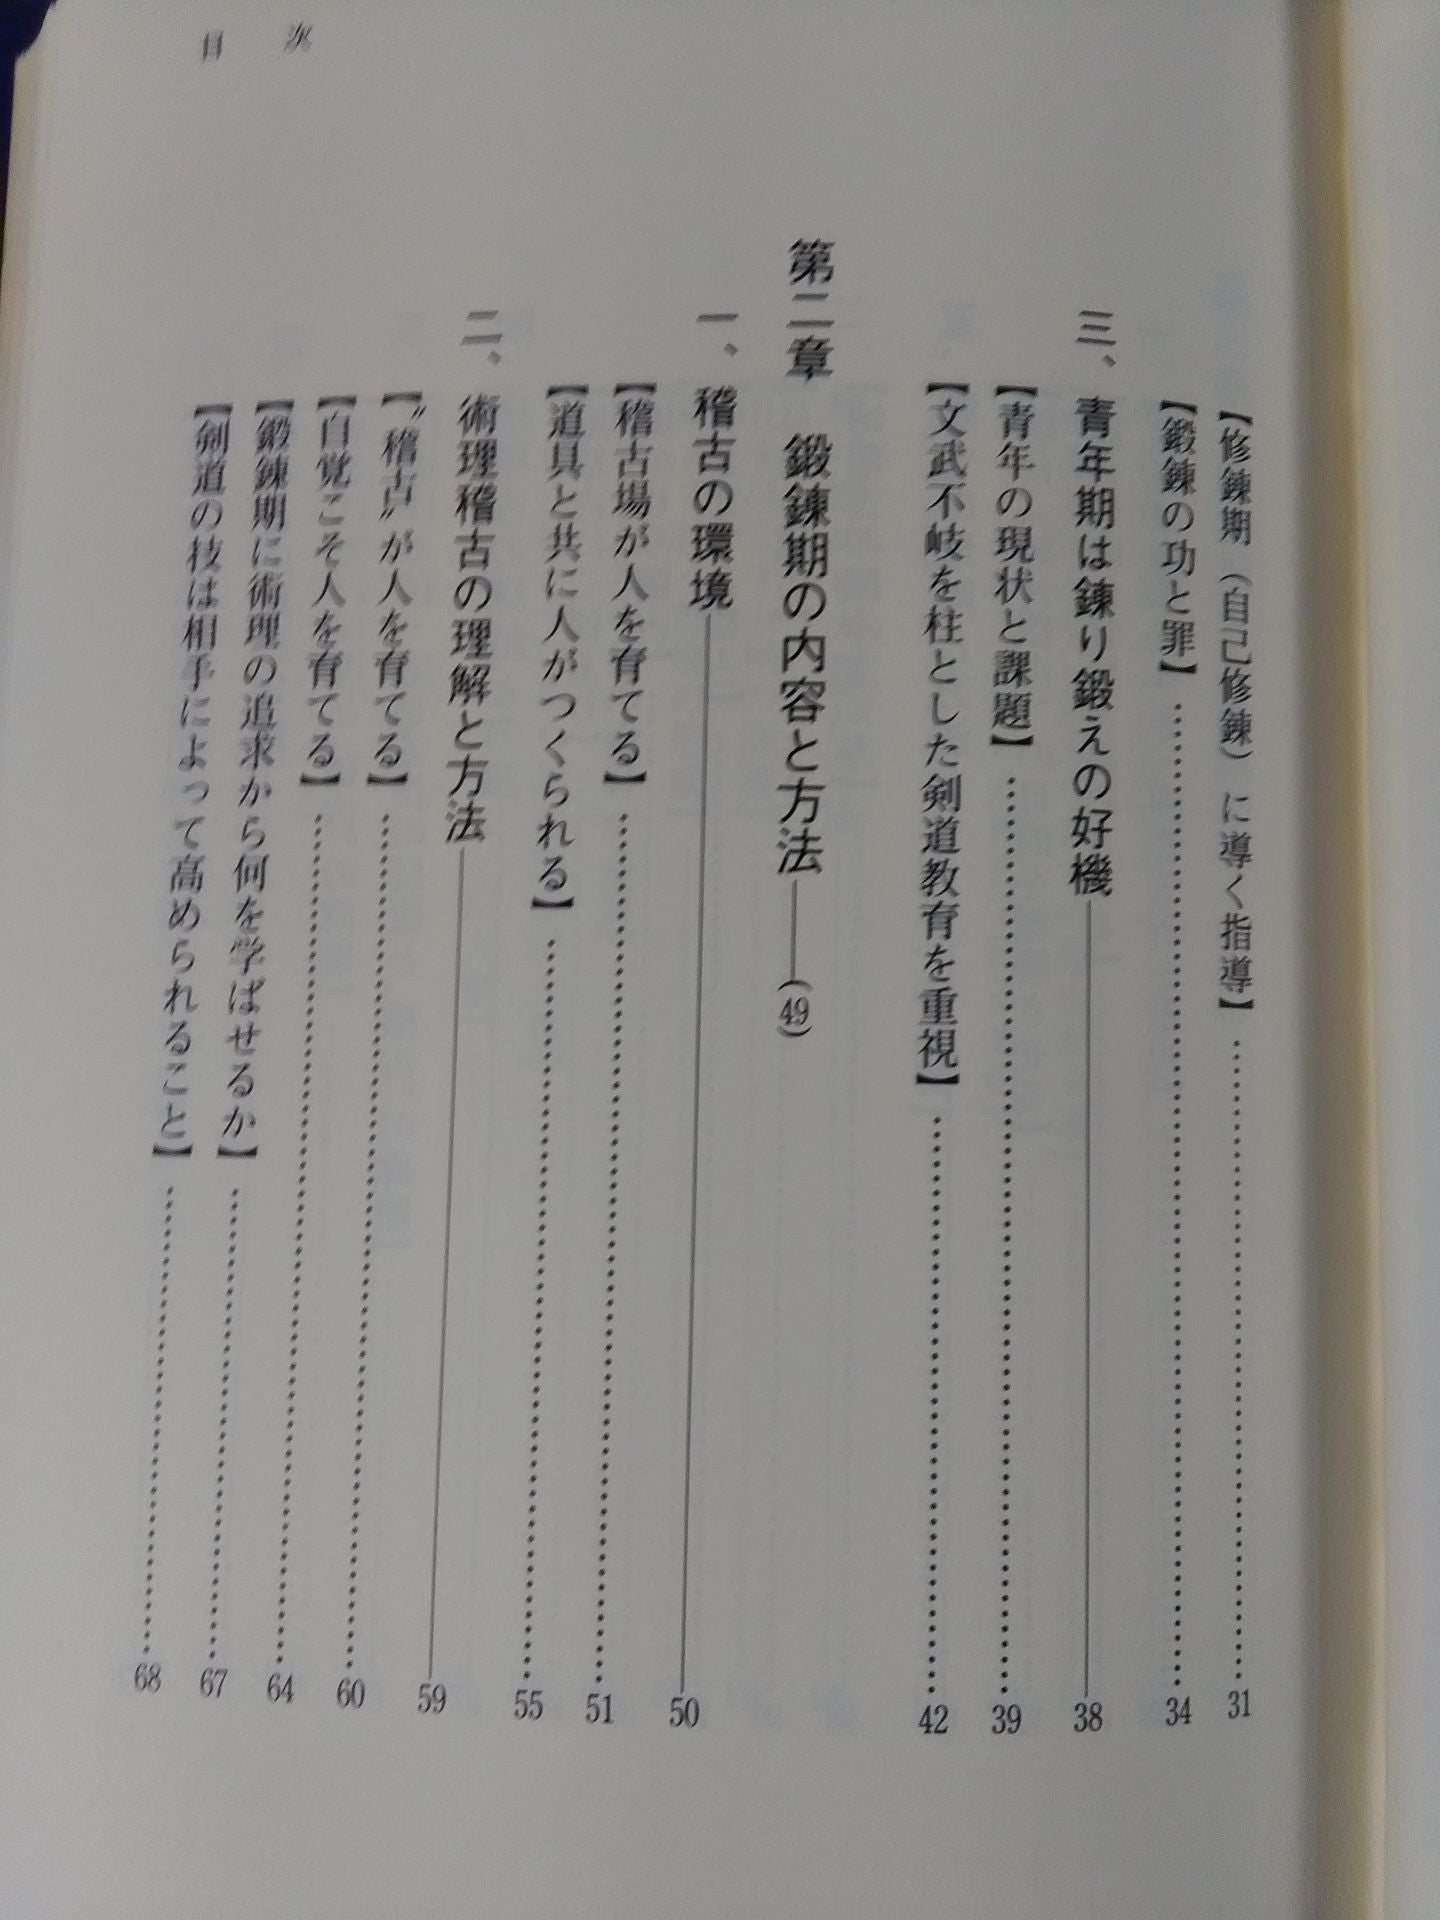 目次
【修錬期（自己修錬）に導く指導】 31
【鍛錬の功と罪】 34
三、青年期は錬り鍛えの好機 38
【青年の現状と課題】 39
【文武不岐を柱とした剣道教育を重視】 42
第二章 鍛錬期の内容と方法 (49)
一、稽古の環境 50
【稽古場が人を育てる】 51
【道具と共に人がつくられる】 55
二、術理稽古の理解と方法 59
【〝稽古〟が人を育てる】 60
【自覚こそ人を育てる】 64
【鍛錬期に術理の追求から何を学ばせるか】 67
【剣道の技は相手によって高められること】 68